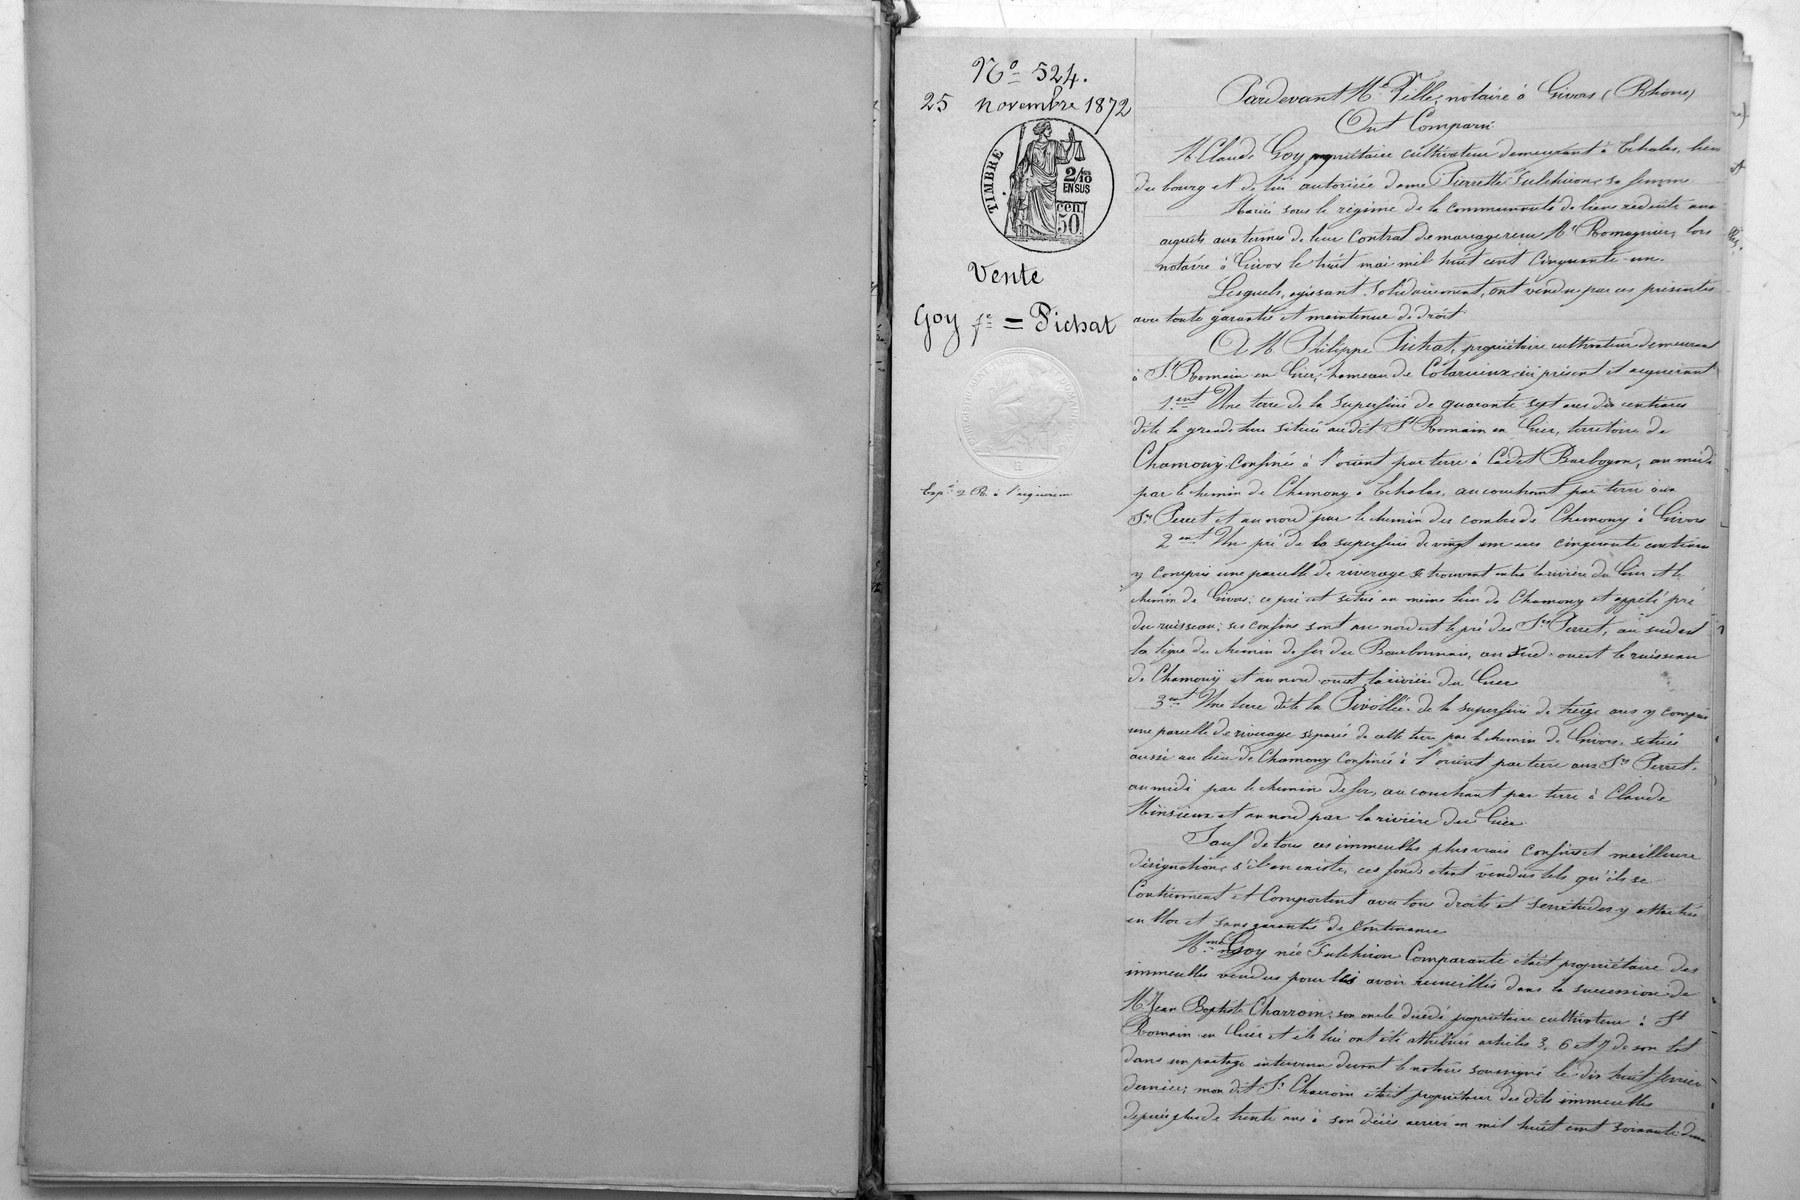 No 524.
25 novembre 1872
TIMBRE
2/10
EN SUS
50 cen.
Vente
Goy fe = Pichat
Expé 2 R. à l'acquéreur
Pardevant Me Ville, notaire à Givors (Rhône)
Ont Comparu
M. Claude Goy propriétaire cultivateur demeurant à Echalas, lieu
du bourg et de lui autorisée dame Pierrette Sulchiron, sa femme
Mariés sous le régime de la communauté de biens réduite aux
acquets aux termes de leur contrat de mariage reçu Me Romagnier, lors
notaire à Givors le huit mai mil huit cent cinquante-un.
Lesquels, agissant solidairement, ont vendu par ces présentes
avec toute garantie et maintenue de droit
A M. Philippe Pichat, propriétaire cultivateur demeurant
à St Romain en Gier, hameau de Cotarcieux, ici présent et acquérant
1ent Une terre de la superficie de quarante sept ares dix centiares
dite la grande terre située au dit St Romain en Gier, territoire de
Chamouÿ Confinée à l'orient par terre à Cadet Barboyon, au midi
par le chemin de Chamouy à Echalas, au couchant par terre aux
Srs Perret et au nord par le chemin des combes de Chamouy à Givors
2ent Un pré de la superficie de vingt un ares cinquante centiares
y compris une parcelle de riverage se trouvant entre la rivière du Gier et le
chemin de Givors; ce pré est situé au même lieu de Chamouy et appelé pré
du ruisseau; ses confins sont au nord est le pré des Srs Perret, au sud est
la ligne du chemin de fer du Bourbonnais, au sud-ouest le ruisseau
de Chamouÿ et au nord-ouest, la rivière du Gier
3ent Une terre dite la Pivollée de la superficie de treize ares y compris
une parcelle de riverage séparée de cette terre par le chemin de Givors, située
aussi au lieu de Chamouy Confinée à l'orient par terre aux Srs Perret,
au midi par le chemin de fer, au couchant par terre à Claude
Minsieux et au nord par la rivière du Gier
Sauf de tous ces immeubles plus vrais confins et meilleure
désignation, s'il en existe, ces fonds étant vendus tels qu'ils se
Contiennent et Comportent avec tous droits et servitudes y attachés
en bloc et sans garantie de Contenance
Mme Goy née Sulchiron Comparante était propriétaire des
immeubles vendus pour les avoir recueillis dans la succession de
M. Jean Baptiste Charroin, son oncle décédé propriétaire cultivateur à St
Romain en Gier et ils lui ont été attribués articles 3, 6 et 7 de son lot
dans un partage intervenu devant le notaire soussigné le dix huit février
dernier; mon dit Sr Charroin était propriétaire des dits immeubles
depuis plus de trente ans à son décès arrivé en mil huit cent soixante deux